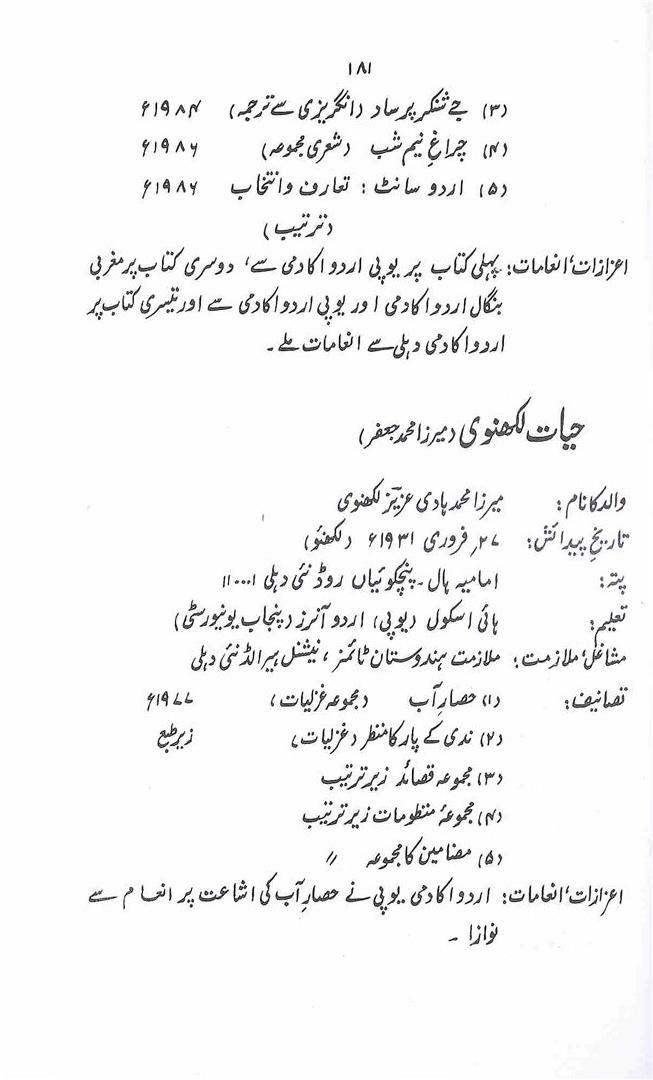 ۱۸۱
(۳) جے شنکر پرساد (انگریزی سے ترجمہ) ۱۹۸۴ء
(۴) چراغِ نیم شب (شعری مجموعہ) ۱۹۸۶ء
(۵) اردو سانٹ: تعارف و انتخاب ۱۹۸۶ء
(ترتیب)
اعزازات، انعامات: پہلی کتاب پر یوپی اردو اکادمی سے، دوسری کتاب پر مغربی
بنگال اردو اکادمی اور یوپی اردو اکادمی سے اور تیسری کتاب پر
اردو اکادمی دہلی سے انعامات ملے۔
حیات لکھنوی (میرزا محمد جعفر)
والد کا نام: میرزا محمد ہادی عزیزؔ لکھنوی
تاریخِ پیدائش: ۲۷، فروری ۱۹۳۱ء (لکھنؤ)
پتہ: امامیہ ہال۔ پنچکوئیاں روڈ نئی دہلی ۱۱۰۰۰۱
تعلیم: ہائی اسکول (یوپی) اردو آنرز (پنجاب یونیورسٹی)
مشاغل، ملازمت: ملازمت ہندوستان ٹائمز، نیشنل ہیرالڈ نئی دہلی
تصانیف: (۱) حصارِ آب (مجموعہ غزلیات) ۱۹۷۷ء
(۲) ندی کے پار کا منظر (غزلیات) زیرِ طبع
(۳) مجموعہ قصائد زیرِ ترتیب
(۴) مجموعۂ منظومات زیرِ ترتیب
(۵) مضامین کا مجموعہ 〃
اعزازات، انعامات: اردو اکادمی یوپی نے حصارِ آب کی اشاعت پر انعام سے
نوازا۔